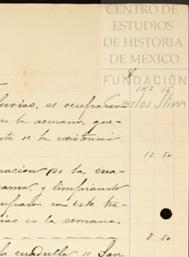 CENTRO DE
ESTUDIOS
DE HISTORIA
DE MEXICO
FUNDACIÓN
Carlos Slim
lluvias, se ocuparon
en la semana, que-
te de la existencia
12 50
ración po la cua-
rama, y limpiando
en este tra-
en la semana.
8 50
la cuadrilla de San